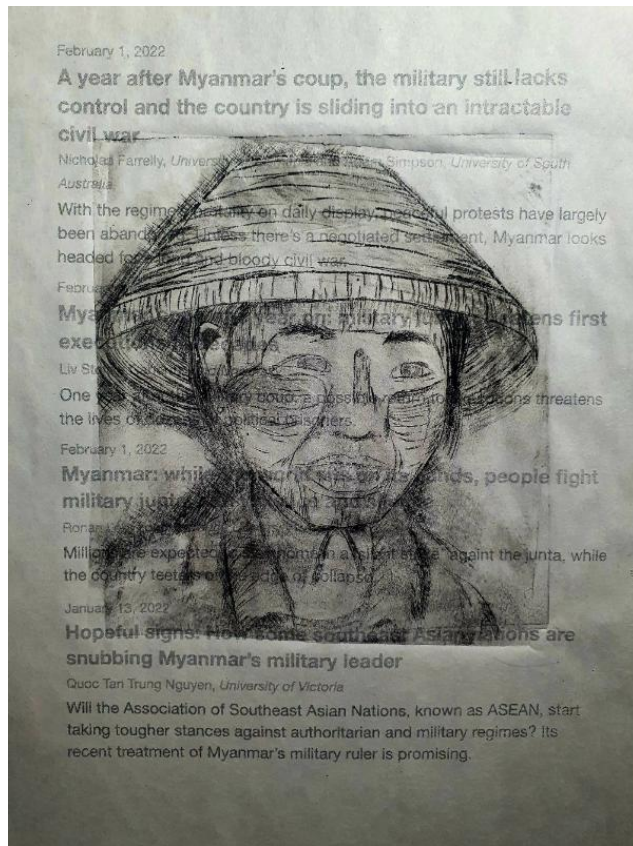 February 1, 2022
A year after Myanmar's coup, the military still lacks
control and the country is sliding into an intractable
civil war
Nicholas Farrelly, Simpson, University of South
Australia
With the regime's brutality on daily display, peaceful protests have largely
been abandoned. Unless there's a negotiated settlement, Myanmar looks
headed for a long and bloody civil war.
February
Myanmar military
Liv
One coup, a possible threatens
the lives of political prisoners.
February 1, 2022
Myanmar: while hands, people fight
military junta
Ronan
Millions are expected to stay home in a silent strike againt the junta, while
the country teeters on the edge of collapse.
January 13, 2022
Hopeful signs: How some southeast Asian nations are
snubbing Myanmar's military leader
Quoc Tan Trung Nguyen, University of Victoria
Will the Association of Southeast Asian Nations, known as ASEAN, start
taking tougher stances against authoritarian and military regimes? Its
recent treatment of Myanmar's military ruler is promising.